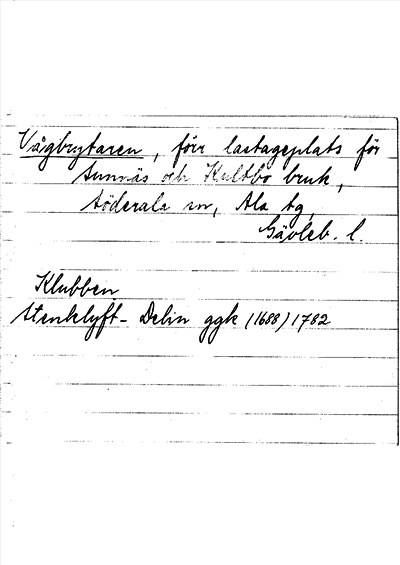 Vågbrytaren, förr lastageplats för
Sunnäs och Kultbo bruk,
Söderala sn, Ala tg,
Gävleb. l.
Klubben
Stenklyft- Delin ggk (1688) 1782